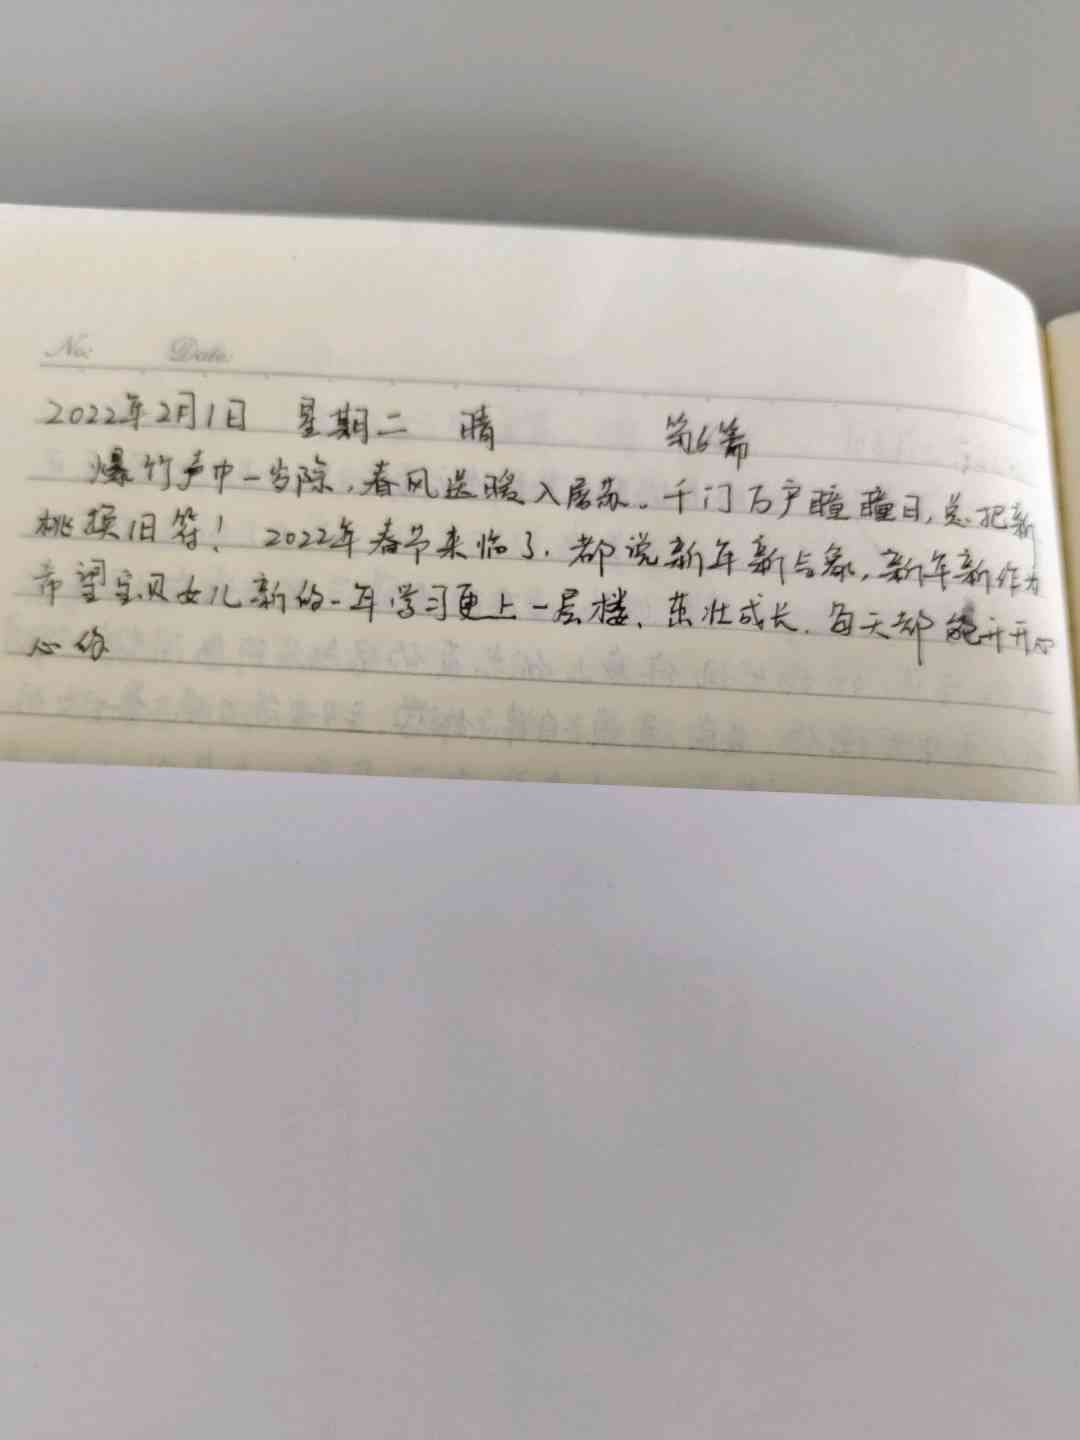 No: Date:
2022年2月1日 星期二 晴 第6篇
爆竹声中一岁除,春风送暖入屠苏。千门万户瞳瞳日,总把新
桃换旧符! 2022年春节来临了,都说新年新气象,新年新作为
希望宝贝女儿新的一年学习更上一层楼、茁壮成长,每天都能开开心
心的